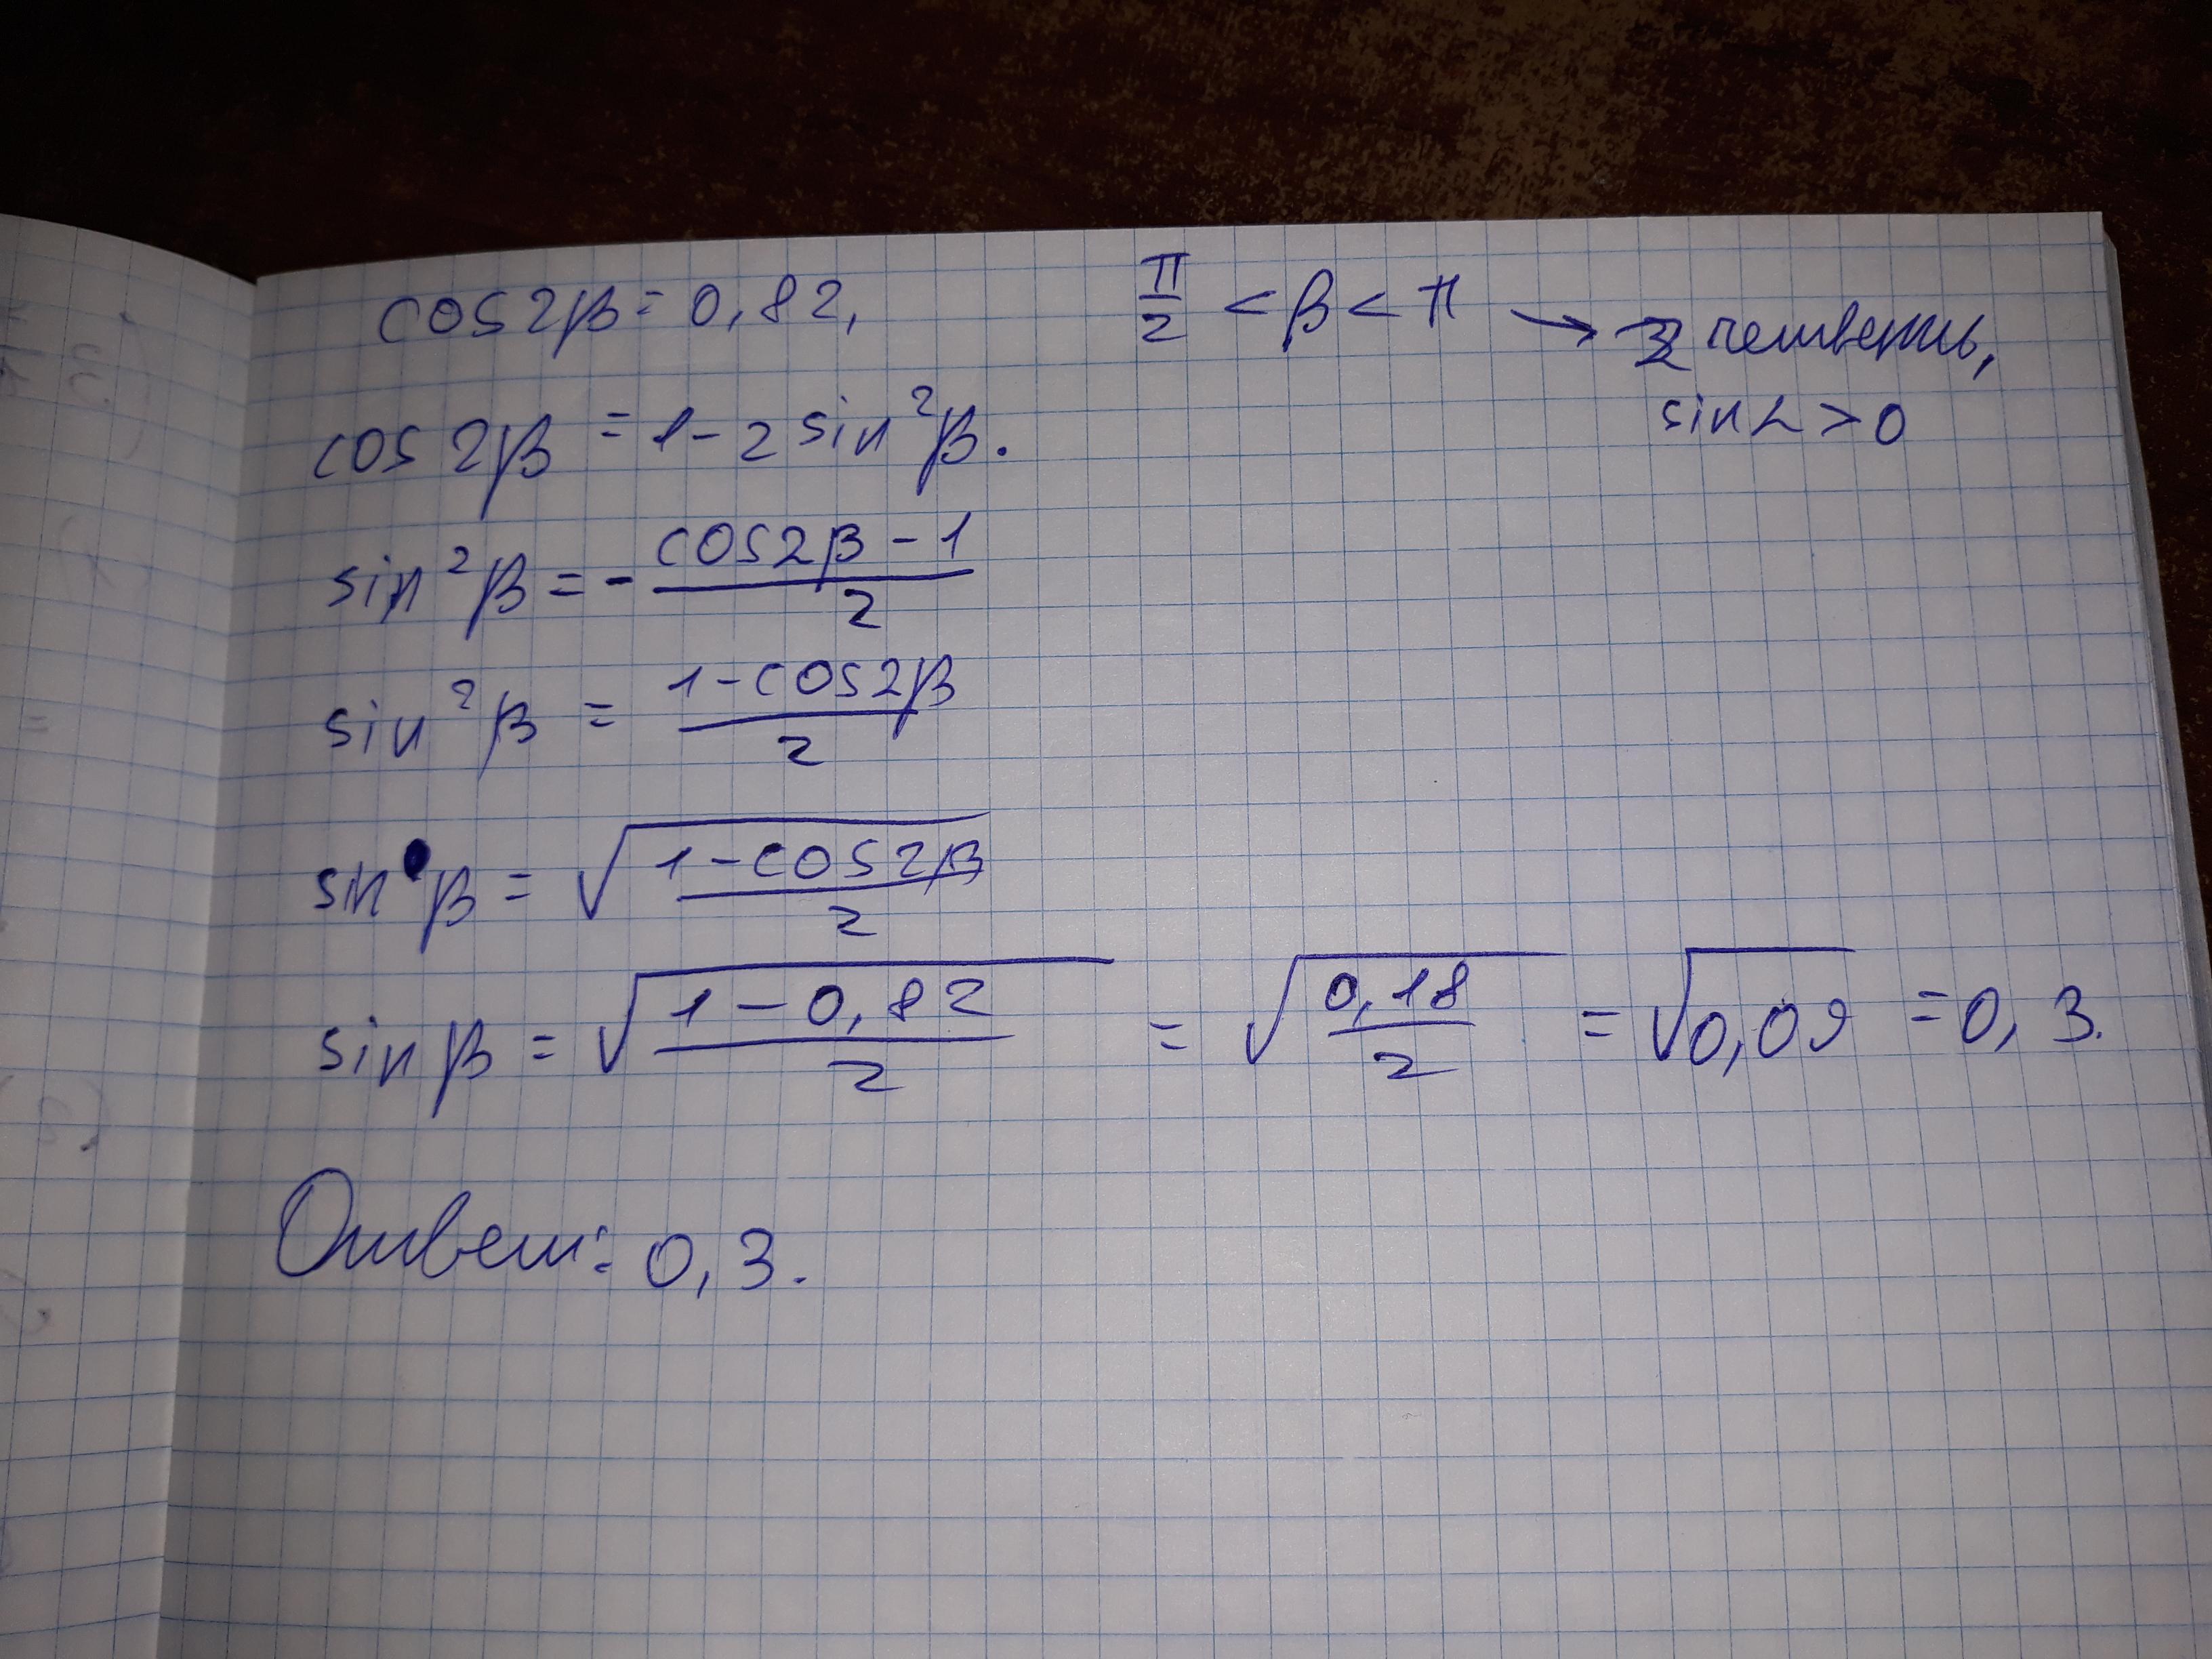 cos2β = 0,82, π/2 < β < π → 2 четверть,
sin∠ > 0
cos2β = 1 - 2 sin²β.
sin²β = - (cos2β - 1)/2
sin²β = (1 - cos2β)/2
sin β = √((1 - cos2β)/2)
sin β = √((1 - 0,82)/2) = √(0,18/2) = √0,09 = 0,3.
Ответ: 0,3.